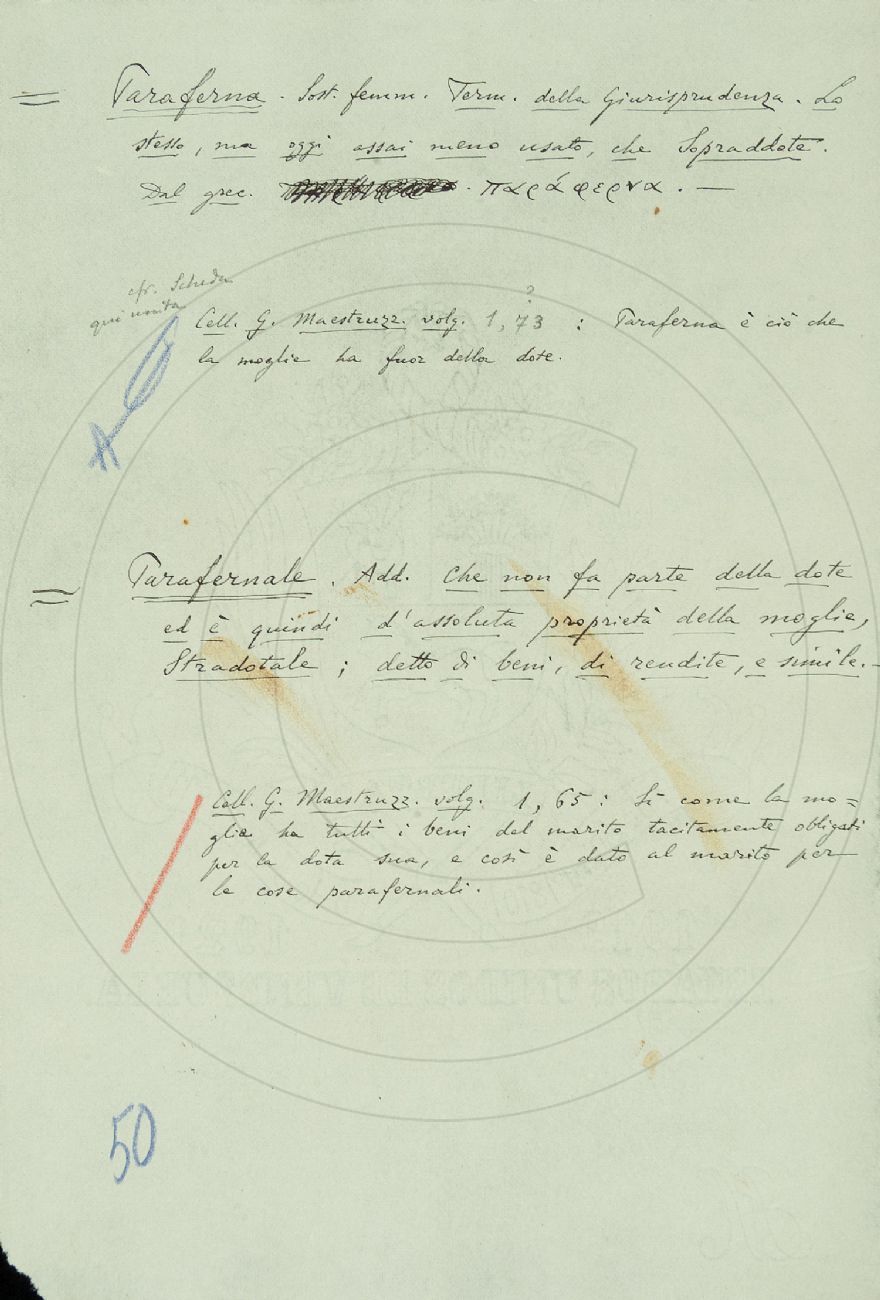 = Paraferna. Sost. femm. Term. della Giurisprudenza. Lo
stesso, ma oggi assai meno usato, che Sopraddote.
Dal grec. παράφερνα. —
cfr. Scheda
qui unita
?
Cell. G. Maestruzz. volg. 1, 73 : Paraferna è ciò che
la moglie ha fuor della dote.
= Parafernale. Add. Che non fa parte della dote
ed è quindi d'assoluta proprietà della moglie,
Stradotale; detto di beni, di rendite, e simile. -
Cell. G. Maestruzz. volg. 1, 65: Sì come la mo=
glie ha tutti i beni del marito tacitamente obligati
per la dota sua, e così è dato al marito per
le cose parafernali.
50